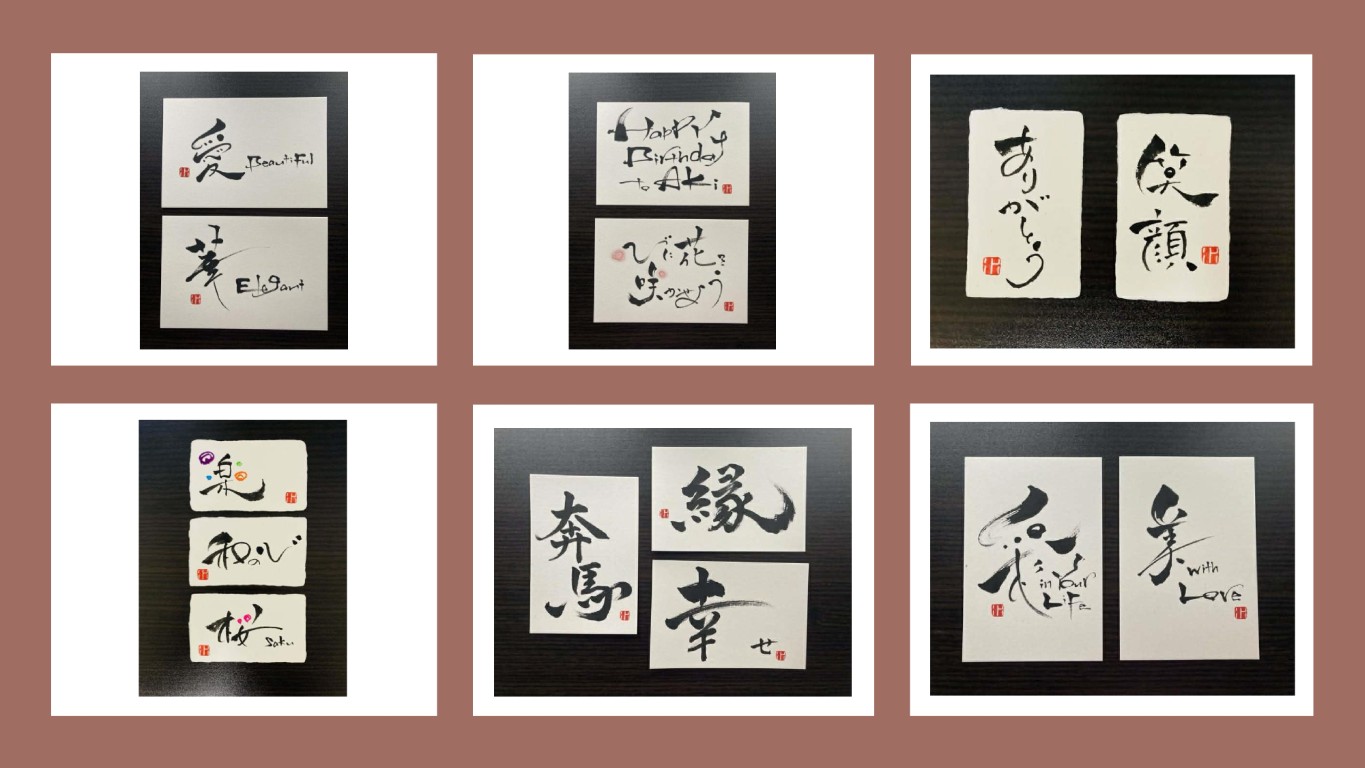 愛 Beautiful
華 Elegant
Happy
Birthday
to Aki
心に花を
咲かせよう
ありがとう
笑顔
楽
和の心
桜 saku
奔馬
縁
幸せ
in Your
Life
美 with
Love